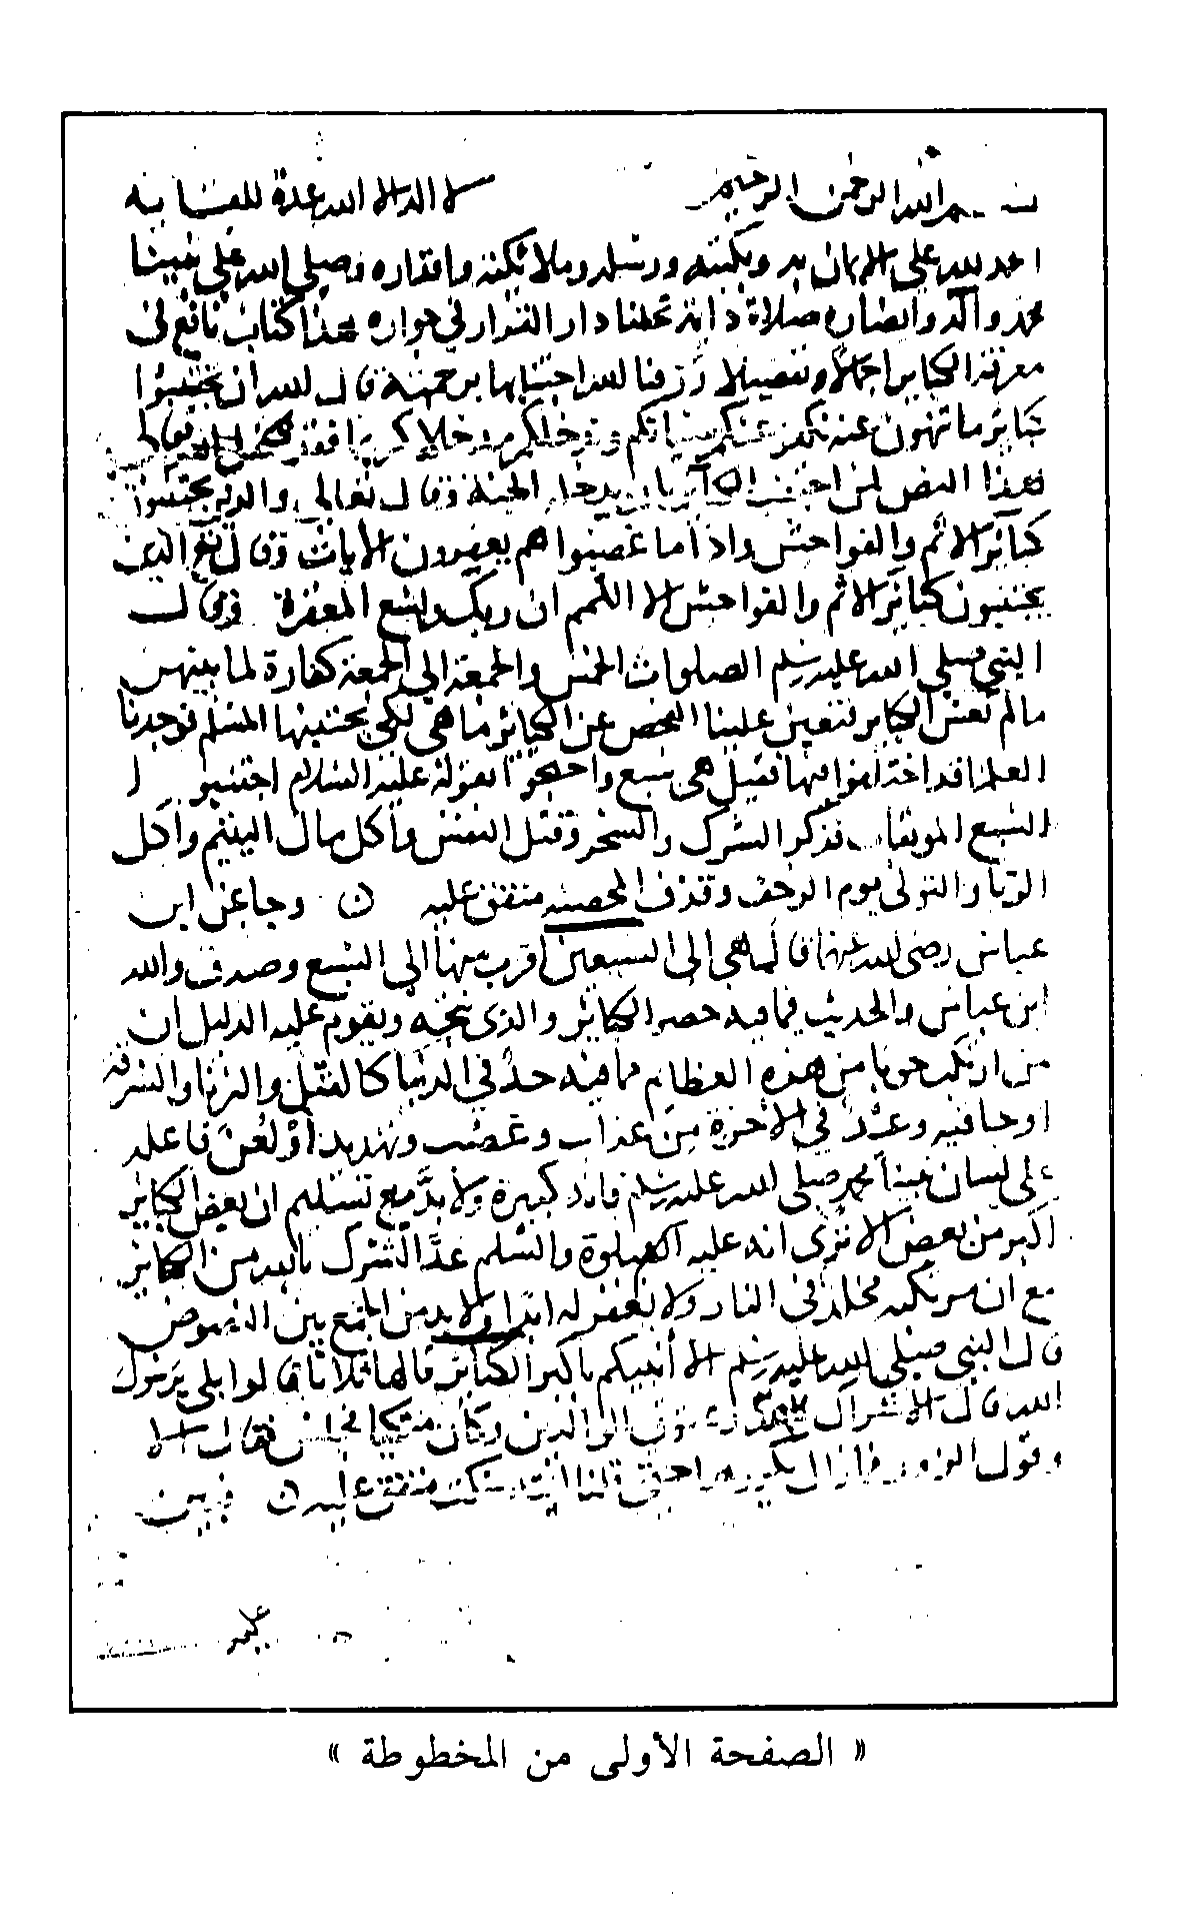 بسم الله الرحمن الرحيم لا اله الا الله عدة للقائه
الحمد لله على الايمان به وبكتبه ورسله وملائكته واقداره وصلى الله على نبينا
محمد واله وانصاره صلاة دايمة تحلنا دار القرار في جواره هذا كتاب نافع في
معرفة الكباير اجمالا وتفصيلا رزقنا الله اجتنابها برحمته قال الله ان تجتنبوا
كبائر ما تنهون عنه نكفر عنكم سيئاتكم وندخلكم مدخلا كريما فقد تعالى
بهذا النص لمن اجتنب الكبآئر بان يدخله الجنة وقال تعالى والذين يجتنبون
كبآئر الاثم والفواحش واذا ما غضبوا هم يغفرون الايات وقال تع الذين
يجتنبون كبآئر الاثم والفواحش الا اللمم ان ربك واسع المغفرة وقال
النبي صلى الله عليه وسلم الصلوات الخمس والجمعة الي الجمعة كفارة لما بينهن
ما لم تغش الكباير فتعين علينا الفحص عن الكبائر ما هي لكي يجتنبها المسلم فوجدنا
العلما قد اختلفوا فيها فقيل هي سبع واحتجوا بقوله عليه السلام اجتنبوا
السبع الموبقات فذكر الشرك والسحر وقتل النفس وأكل مال اليتيم وأكل
الربا والتولي يوم الزحف وقذف المحصنه متفق عليه ن وجا عن ابن
عباس رضي الله عنهما قال هي الى السبعين اقرب منها الي السبع وصدق والله
ابن عباس والحديث فما فيه حصر الكبائر والذي يتجه ويقوم عليه الدليل ان
من ارتكب حوبا من هذه العظايم مما فيه حد في الدنيا كالقتل والزنا والسرقة
او جا فيه وعيد في الاخرة من عذاب وغضب وتهديد أو لعن فاعله
على لسان نبينا محمد صلى الله عليه وسلم فانه كبيرة ولا بد مع تسليم ان بعض الكبائر
اكبر من بعض الا ترى انه عليه الصلوة والسلم عد الشرك بالله من الكبائر
مع ان مرتكبه مخلد في النار ولا يغفر له ابدا ولا بد من الجمع بين النصوص
قال النبي صلى الله عليه وسلم الا أنبيكم باكبر الكبائر قالها ثلاثا قالوا بلى يرسول
الله قال الاشراك بالله وعقوق الوالدين وكان متكيا فجلس فقال الا
وقول الزور فما زال يكررها حتى قلنا ليته سكت متفق عليه ن فبين
عليه
« الصفحة الأولى من المخطوطة »